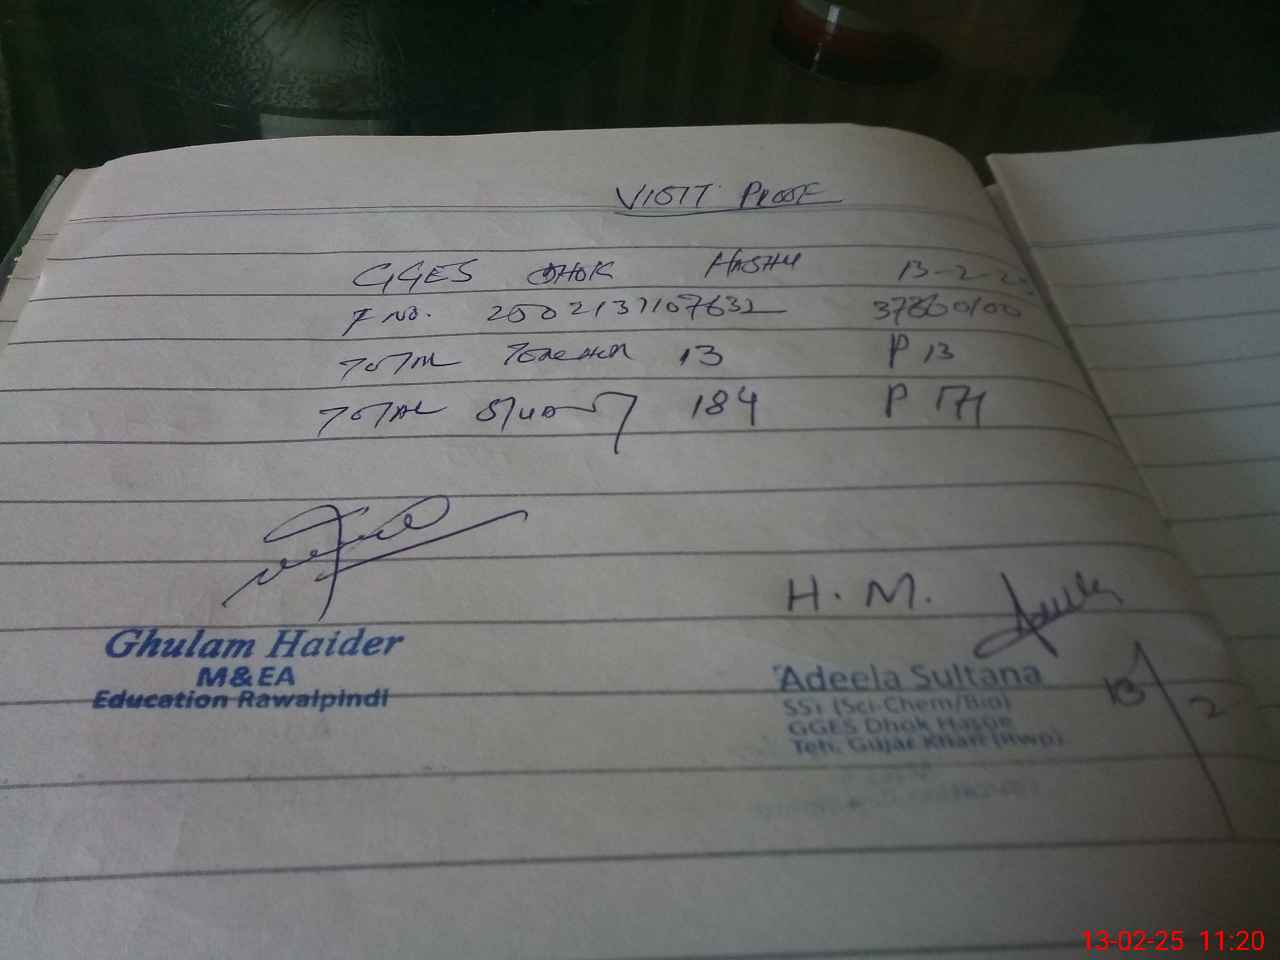 VISIT PROOF
GGES DHOK HASHU 13-2-2
F NO. 2502137107632 37360100
TOTAL TEACHER 13 P 13
TOTAL 184 P 171
H. M.
Ghulam Haider
M&EA
Education Rawalpindi
Adeela Sultana
SST (Sci-Chem/Bio)
GGES Dhok
Teh. Gujar Khan (Rwp)
13/2
13-02-25 11:20